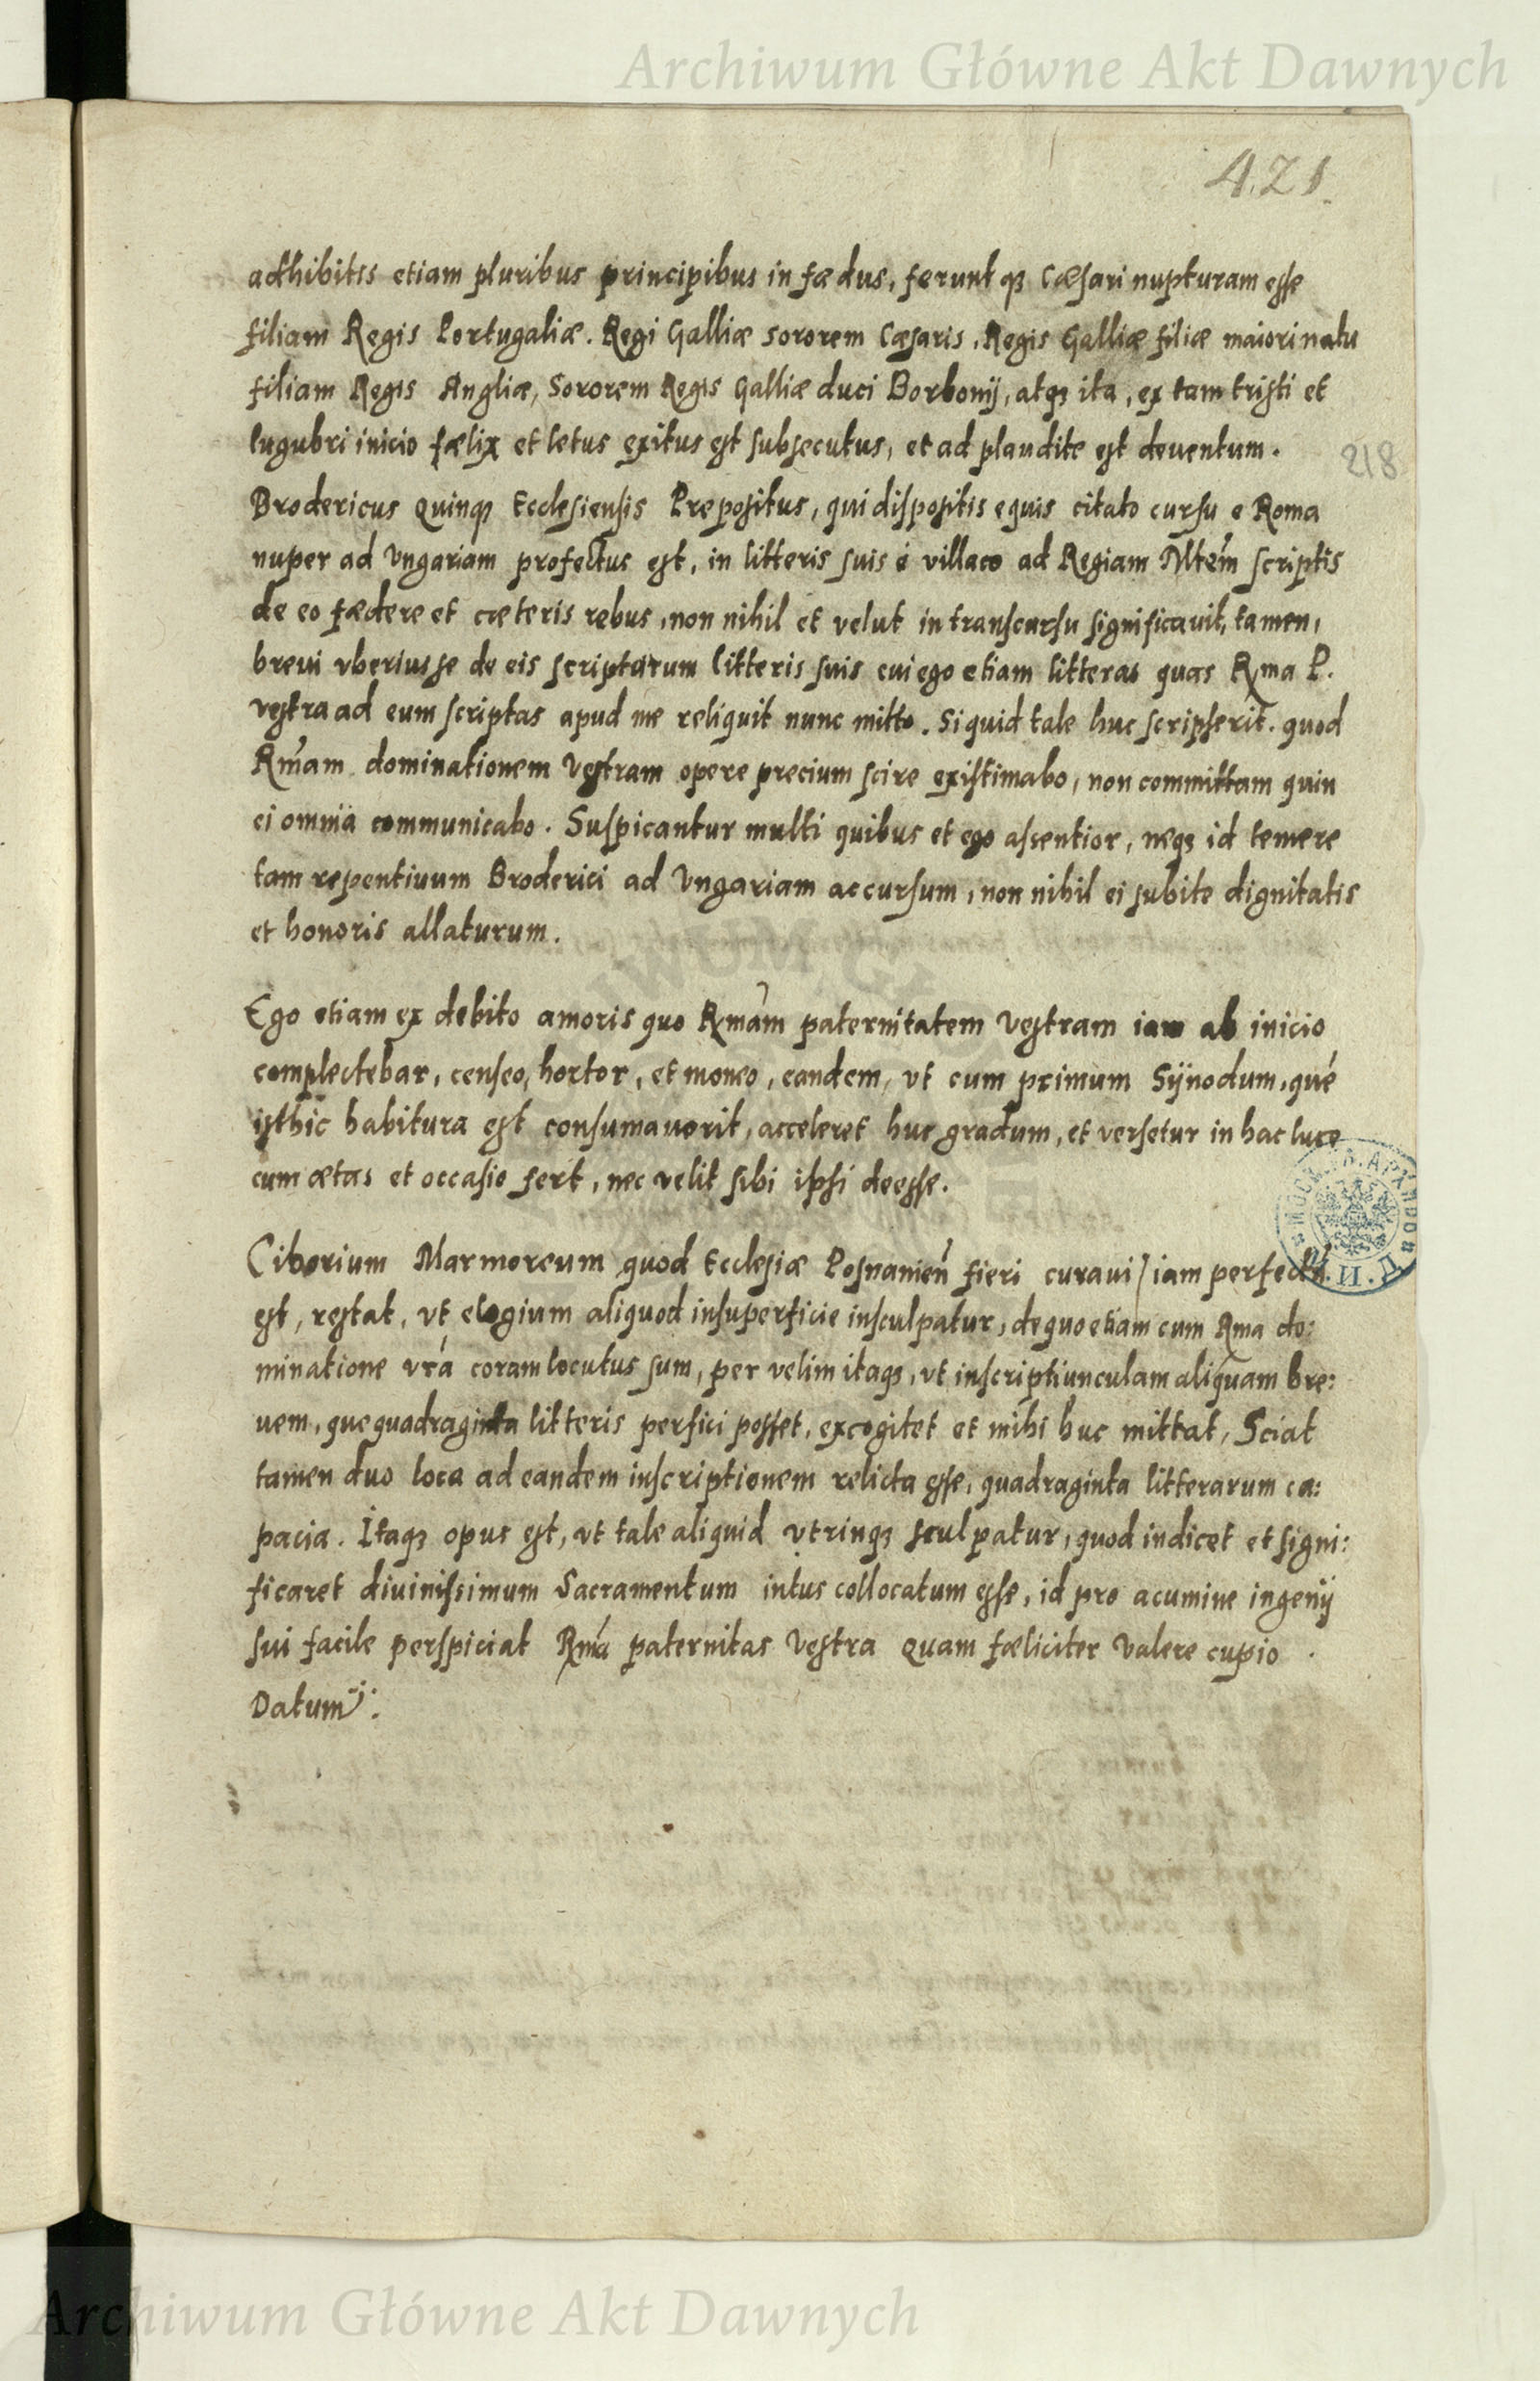 Archiwum Główne Akt Dawnych
421.
adhibitis etiam pluribus principibus in fædus, ferunt qȝ Cæsari nupturam esse
filiam Regis Portugaliæ. Regi Galliæ sororem Cæsaris, Regis Galliæ filiæ maiori natu
filiam Regis Angliæ, Sororem Regis Galliæ duci Borbonij, atqȝ ita, ex tam tristi et
lugubri inicio fælix et letus exitus est subsecutus, et ad plaudite est deuentum.
218
Brodericus Quinqȝ Ecclesiensis Prepositus, qui dispositis equis citato cursu e Roma
nuper ad Vngariam profectus est, in litteris suis e villaco ad Regiam Mtem̃ scriptis
de eo fædere et cæteris rebus, non nihil et velut in transcursu significauit, tamen,
breui vberius se de eis scripturum litteris suis cui ego etiam litteras quas Rma P.
vestra ad eum scriptas apud me reliquit nunc mitto. Si quid tale huc scripserit. quod
Rm̃am dominationem Vestram opere precium scire existimabo, non committam quin
ei omnia communicabo. Suspicantur multi quibus et ego assentior, neqȝ id temere
tam repentiuum Broderici ad Vngariam accursum, non nihil ei subite dignitatis
et honoris allaturum.
Ego etiam ex debito amoris quo Rmãm paternitatem Vestram iam ab inicio
complectebar, censeo, hortor, et moneo, eandem, vt cum primum Sÿnodum, qué
isthic habitura est consumauerit, acceleret huc gradum, et versetur in hac luce
cum ætas et occasio fert, nec velit sibi ipsi deesse.
Ciborium Marmoreum quod Ecclesiæ Posnanieñ fieri curaui iam perfectũ
est, restat, vt elogium aliquod insuperficie insculpatur, de quo etiam cum Rma do:
minatione vrá coram locutus sum, per velim itaqȝ, vt inscriptiunculam aliquam bre:
uem, que quadraginta litteris perfici posset, excogitet et mihi huc mittat, Sciat
tamen duo loca ad eandem inscriptionem relicta esse, quadraginta litterarum ca:
pacia. Itaqȝ opus est, vt tale aliquid vtrinqȝ sculpatur, quod indicet et signi:
ficaret diuinissimum Sacramentum intus collocatum esse, id pro acumine ingenij
sui facile perspiciat Rmá paternitas Vestra quam fæliciter Valere cupio.
Datum
Archiwum Główne Akt Dawnych